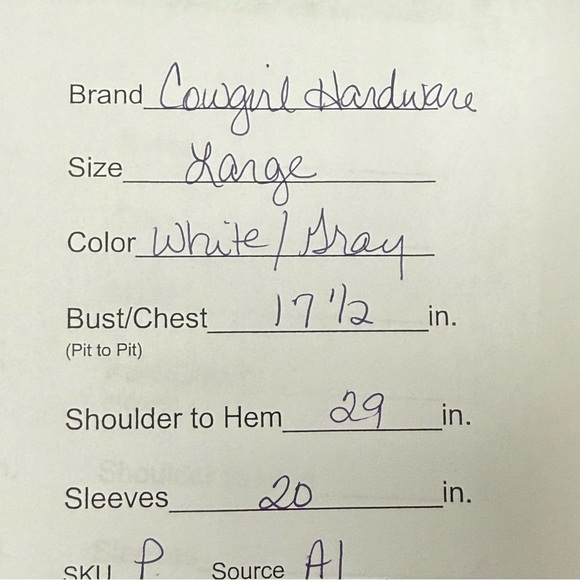 Brand Cowgirl Hardware
Size Large
Color White/Gray
Bust/Chest 17 1/2 in.
(Pit to Pit)
Shoulder to Hem 29 in.
Sleeves 20 in.
SKU P Source A1